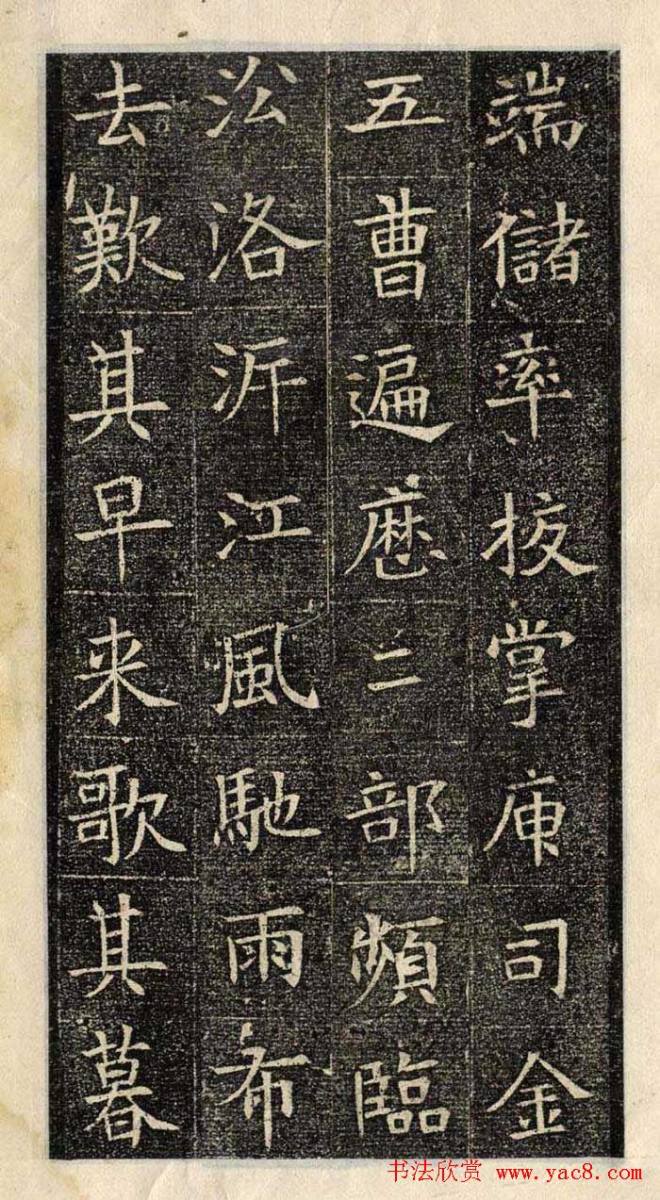 端儲率掖掌庾司金
五曹遍歷二部頻臨
㳂洛泝江風馳雨布
去歎其早来歌其暮
书法欣赏 www.yac8.com